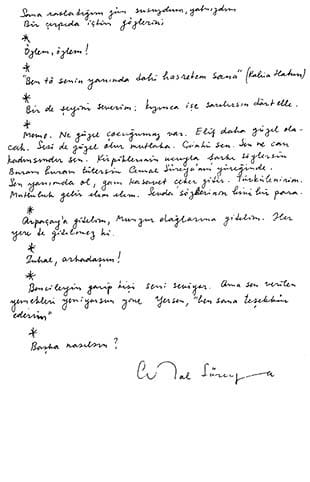 Sana rastladığım gün susuzdum, yalnızdım
Bir çırpıda içtim gözlerini
*
Özlem, özlem!
*
"Ben tâ senin yanında dahi hasretem sana" (Kalia Hatun)
*
Bir de şeyini severim; kızınca ise sarılırsın dört elle.
*
Memo. Ne güzel çocuğumuz var. Elif daha güzel ola-
cak. Sesi de güzel olur mutlaka. Çünkü sen. Sen ne can
kadınsındır sen. Kirpiklerinin ucuyla şarkı söylersin
Buram buram tütersin Cemal Süreya'nın yüreğinde.
Sen yanımda ol, gam kasavet çeker gider. Türkülenirim.
Mutluluk gelir ılım ılım. Sevda sözlerinin bini bir para.
*
Arpaçay'a gidelim, Munzur dağlarına gidelim. Her
yere de gidilmez ki.
*
Zuhal, arkadaşım!
*
Bencileyin garip kişi seni seviyor. Ama sen verilen
yemekleri yemiyorsun gene. Yersen, "ben sana teşekkür
ederim"
*
Başka nasılsın?
Cemal Süreya